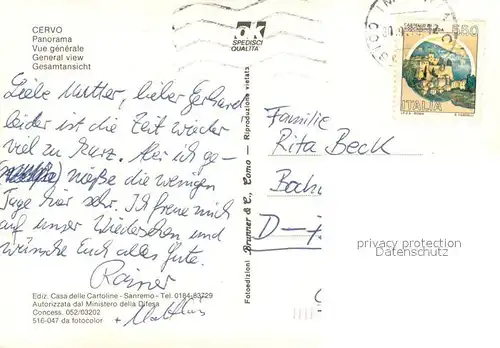 CERVO
Panorama
Vue générale
General view
Gesamtansicht
ak
SPEDISCI
QUALITÀ
550
ITALIA
Liebe Mutter, lieber Gerhard
leider ist die Zeit wieder
viel zu kurz. Aber ich ge-
nieße die wenigen
Tage hier sehr. Ich freue mich
auf unser Wiedersehen und
wünsche Euch alles Gute.
Rainer
+ Matthias
Familie
Rita Beck
D-
privacy protection
Datenschutz
Fotoedizioni Brunner & C., Como - Riproduzione vietata
Ediz. Casa delle Cartoline - Sanremo - Tel. 0184-83729
Autorizzata dal Ministero della Difesa
Concess. 052/03202
516-047 da fotocolor